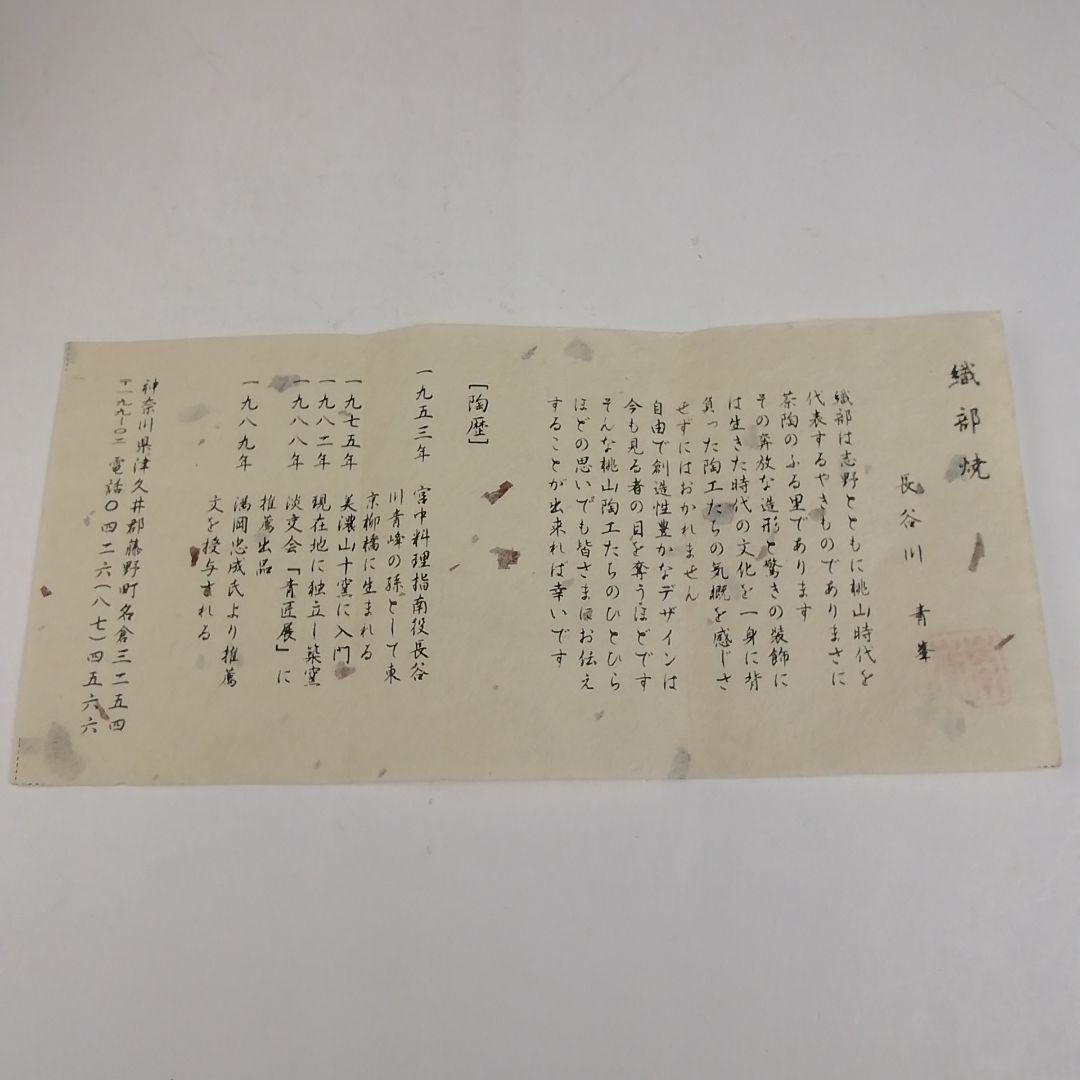 織部焼
長谷川 青峯
織部は志野とともに桃山時代を
代表するやきものでありまさに
茶陶のふる里であります
その奔放な造形と驚きの装飾に
は生きた時代の文化を一身に背
負った陶工たちの気概を感じさ
せずにはおかれません
自由で創造性豊かなデザインは
今も見る者の目を奪うほどです
そんな桃山陶工たちのひとひら
ほどの思いでも皆さまにお伝え
することが出来れば幸いです
[陶歴]
一九五三年 宮中料理指南役長谷
川青峰の孫として東
京柳橋に生まれる
一九七五年 美濃山十窯に入門
一九八二年 現在地に独立し築窯
一九八八年 淡交会「青匠展」に
推薦出品
一九八九年 満岡忠成氏より推薦
文を授与される
神奈川県津久井郡藤野町名倉三二五四
〒一九九-〇二 電話〇四二六(八七)四五六六